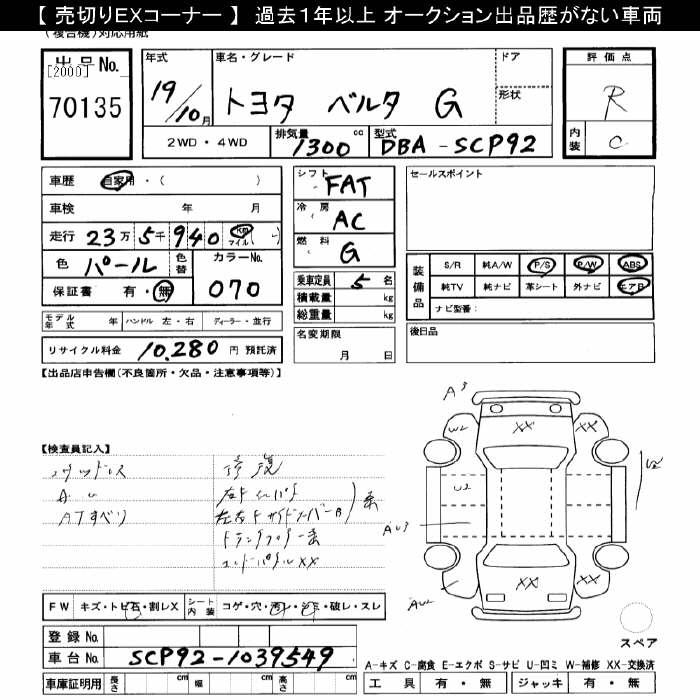 【 売切りEXコーナー 】 過去１年以上 オークション出品歴がない車両
(複合機)対応用紙
出品No.
[2000]
70135
年式
19/10月
車名・グレード
トヨタ ベルタ G
ドア
形状
評価点
R
内装
C
2WD・4WD
排気量 1300 cc
型式 DBA-SCP92
車歴 自家用・( )
車検 年 月
走行 23万5千940 Km マイル
色 パール 色替 カラーNo. 070
保証書 有・無
モデル年式 年 ハンドル 左・右 ディーラー・並行
リサイクル料金 10,280 円 預託済
シフト FAT
冷房 AC
燃料 G
乗車定員 5 名
積載量 kg
総重量 kg
名変期限
月 日
セールスポイント
装備品
S/R 純A/W P/S P/W ABS
純TV 純ナビ 革シート 外ナビ エアB
ナビ型番:
後日品
【出品店申告欄(不良箇所・欠品・注意事項等)】
【検査員記入】
修復
ATすべり
A3
W2 XX XX
U2
U2
AU3
XX XX
AU2
FW キズ・トビ石・割レX シート内装 コゲ・穴・汚レ・シミ・破レ・スレ
登録No.
車台No. SCP92-1039549
車庫証明用 長さ cm 幅 cm 高さ cm
スペア
A-キズ C-腐食 E-エクボ S-サビ U-凹ミ W-補修 XX-交換済
工具 有・無 ジャッキ 有・無